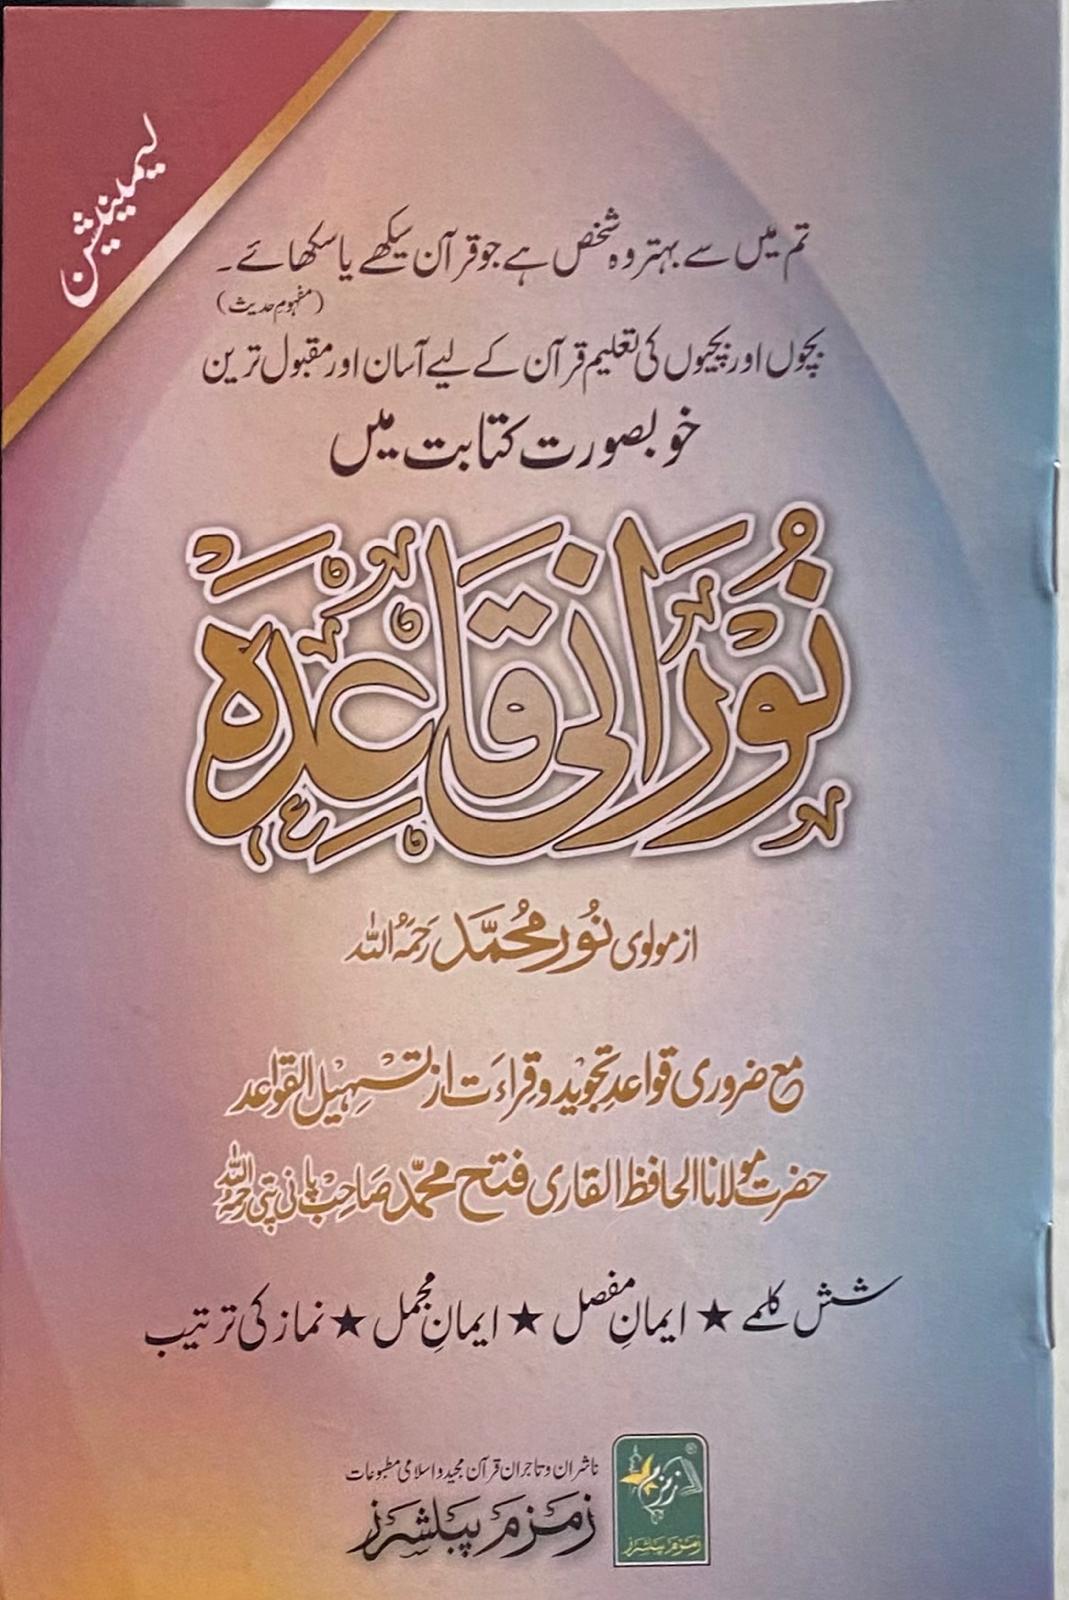 لیمینیشن
تم میں سے بہتر وہ شخص ہے جو قرآن سیکھے یا سکھائے۔
(مفہوم حدیث)
بچوں اور بچیوں کی تعلیم قرآن کے لیے آسان اور مقبول ترین
خوبصورت کتابت میں
نُوْرَانی قَاعِدَہ
از مولوی نُور مُحَمَّد رَحِمَہُ اللہ
مع ضروری قواعدِ تجوید و قِراءَت از تسہیل القواعد
حضرت مولانا الحافظ القاری فتح محمّد صاحب پانی پتی رحمہ اللہ
شش کلمے ★ ایمانِ مفصل ★ ایمانِ مجمل ★ نماز کی ترتیب
ناشران و تاجران قرآن مجید و اسلامی مطبوعات
زمزم پبلشرز
زمزم
زمزم پبلشرز